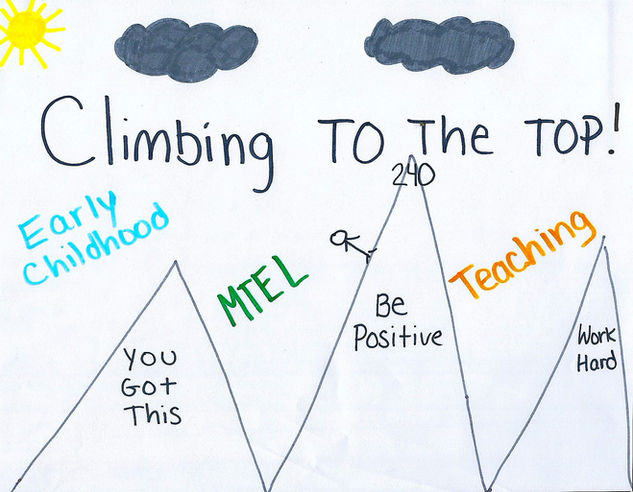 Climbing TO The TOP!
240
Early
Childhood
MTEL
Teaching
Be
Positive
Work
Hard
You
Got
This